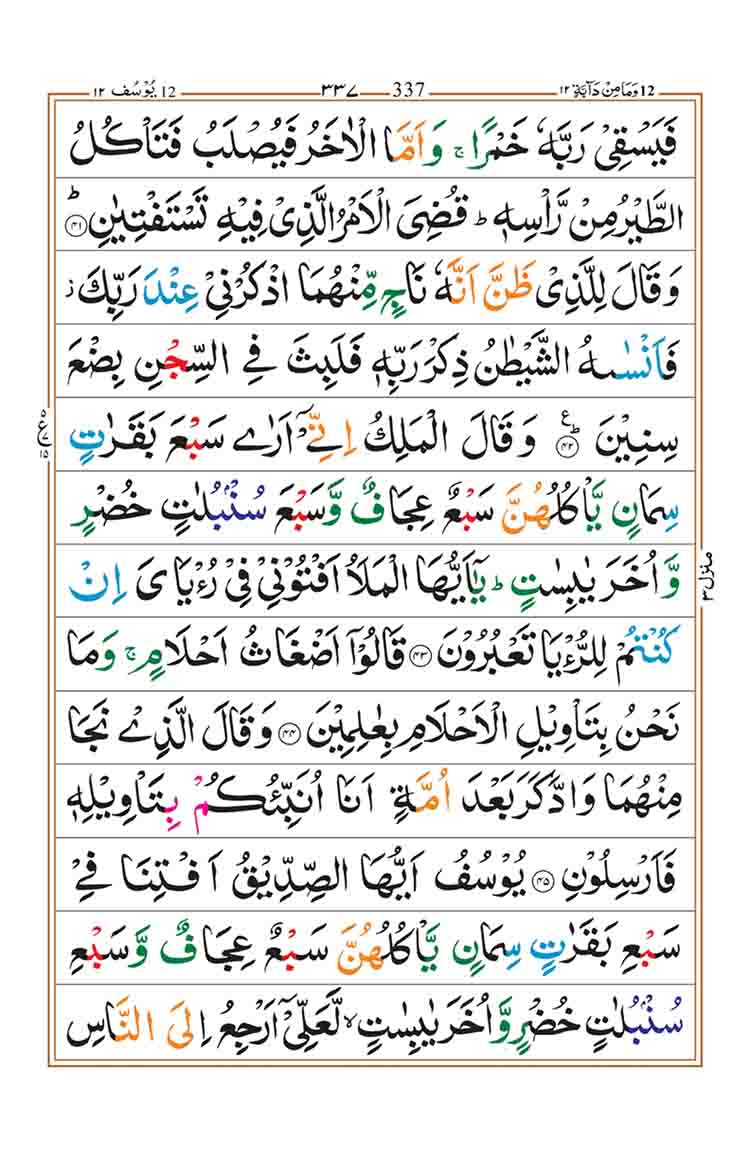 12 وَمَا مِنْ دَآبَّةٍ ١٢ 337 ٣٣٧ 12 يُوْسُف ١٢
فَيَسْقِيْ رَبَّهٗ خَمْرًا ۚ وَاَمَّا الْاٰخَرُ فَيُصْلَبُ فَتَاْكُلُ
الطَّيْرُ مِنْ رَّاْسِهٖ ؕ قُضِيَ الْاَمْرُ الَّذِيْ فِيْهِ تَسْتَفْتِيٰنِ ؕ ۝٤١
وَقَالَ لِلَّذِيْ ظَنَّ اَنَّهٗ نَاجٍ مِّنْهُمَا اذْكُرْنِيْ عِنْدَ رَبِّكَ ز
فَاَنْسٰىهُ الشَّيْطٰنُ ذِكْرَ رَبِّهٖ فَلَبِثَ فِي السِّجْنِ بِضْعَ
سِنِيْنَ ؕ ۝٤٢ ع وَقَالَ الْمَلِكُ اِنِّيْۤ اَرٰى سَبْعَ بَقَرٰتٍ
سِمَانٍ يَّاْكُلُهُنَّ سَبْعٌ عِجَافٌ وَّسَبْعَ سُنْۢبُلٰتٍ خُضْرٍ
وَّاُخَرَ يٰبِسٰتٍ ؕ يٰۤاَيُّهَا الْمَلَاُ اَفْتُوْنِيْ فِيْ رُءْيَايَ اِنْ
كُنْتُمْ لِلرُّءْيَا تَعْبُرُوْنَ ۝٤٣ قَالُوْۤا اَضْغَاثُ اَحْلَامٍ ۚ وَمَا
نَحْنُ بِتَاْوِيْلِ الْاَحْلَامِ بِعٰلِمِيْنَ ۝٤٤ وَقَالَ الَّذِيْ نَجَا
مِنْهُمَا وَادَّكَرَ بَعْدَ اُمَّةٍ اَنَا اُنَبِّئُكُمْ بِتَاْوِيْلِهٖ
فَاَرْسِلُوْنِ ۝٤٥ يُوْسُفُ اَيُّهَا الصِّدِّيْقُ اَفْتِنَا فِيْ
سَبْعِ بَقَرٰتٍ سِمَانٍ يَّاْكُلُهُنَّ سَبْعٌ عِجَافٌ وَّسَبْعِ
سُنْۢبُلٰتٍ خُضْرٍ وَّاُخَرَ يٰبِسٰتٍ ۙ لَّعَلِّيْۤ اَرْجِعُ اِلَى النَّاسِ
منزل ٣